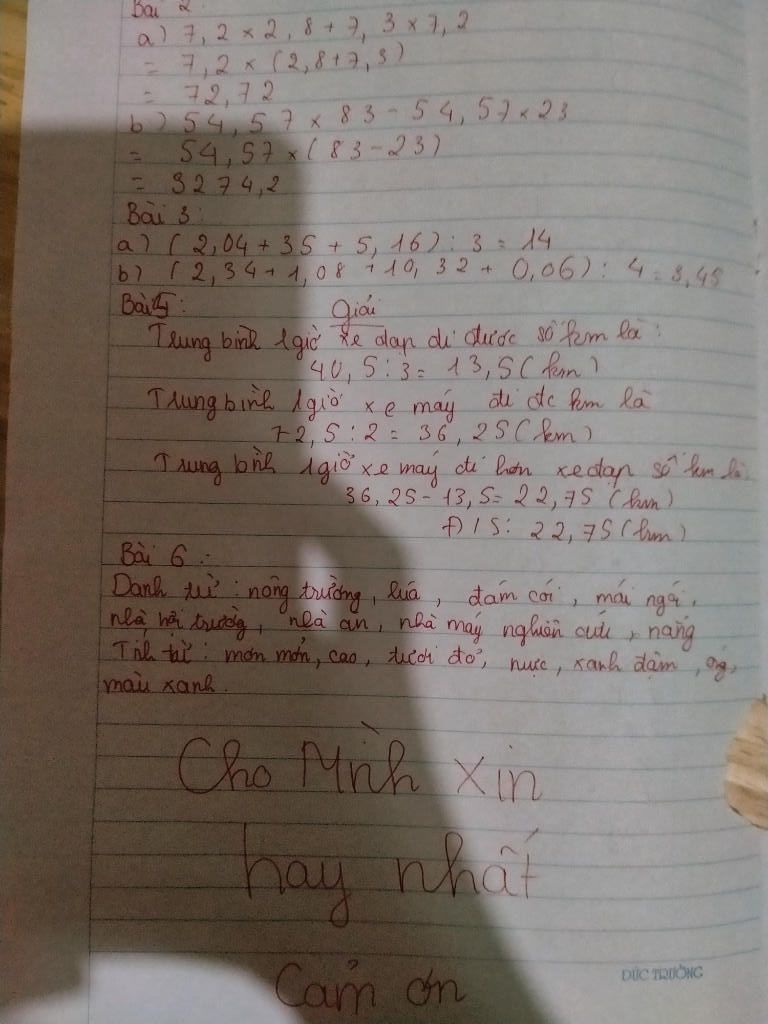 Bài 2
a) 7,2 × 2,8 + 7,3 × 7,2
= 7,2 × (2,8 + 7,3)
= 72,72
b) 54,57 × 83 - 54,57 × 23
= 54,57 × (83 - 23)
= 3274,2
Bài 3:
a) (2,04 + 35 + 5,16) : 3 = 14
b) (2,34 + 1,08 + 10,32 + 0,06) : 4 = 3,45
Bài 5: Giải
Trung bình 1 giờ xe đạp đi được số km là:
40,5 : 3 = 13,5 (km)
Trung bình 1 giờ xe máy đi đc km là
72,5 : 2 = 36,25 (km)
Trung bình 1 giờ xe máy đi hơn xe đạp số km là:
36,25 - 13,5 = 22,75 (km)
Đ/S: 22,75 (km)
Bài 6:
Danh từ: nông trường, lúa, đám cói, mái ngói,
nhà hội trường, nhà ăn, nhà máy nghiền cói, nắng
Tính từ: mơn mởn, cao, tươi đỏ, nực, xanh đậm,
màu xanh.
Cho Mình Xin
hay nhất
Cảm ơn
ĐỨC TRƯỜNG